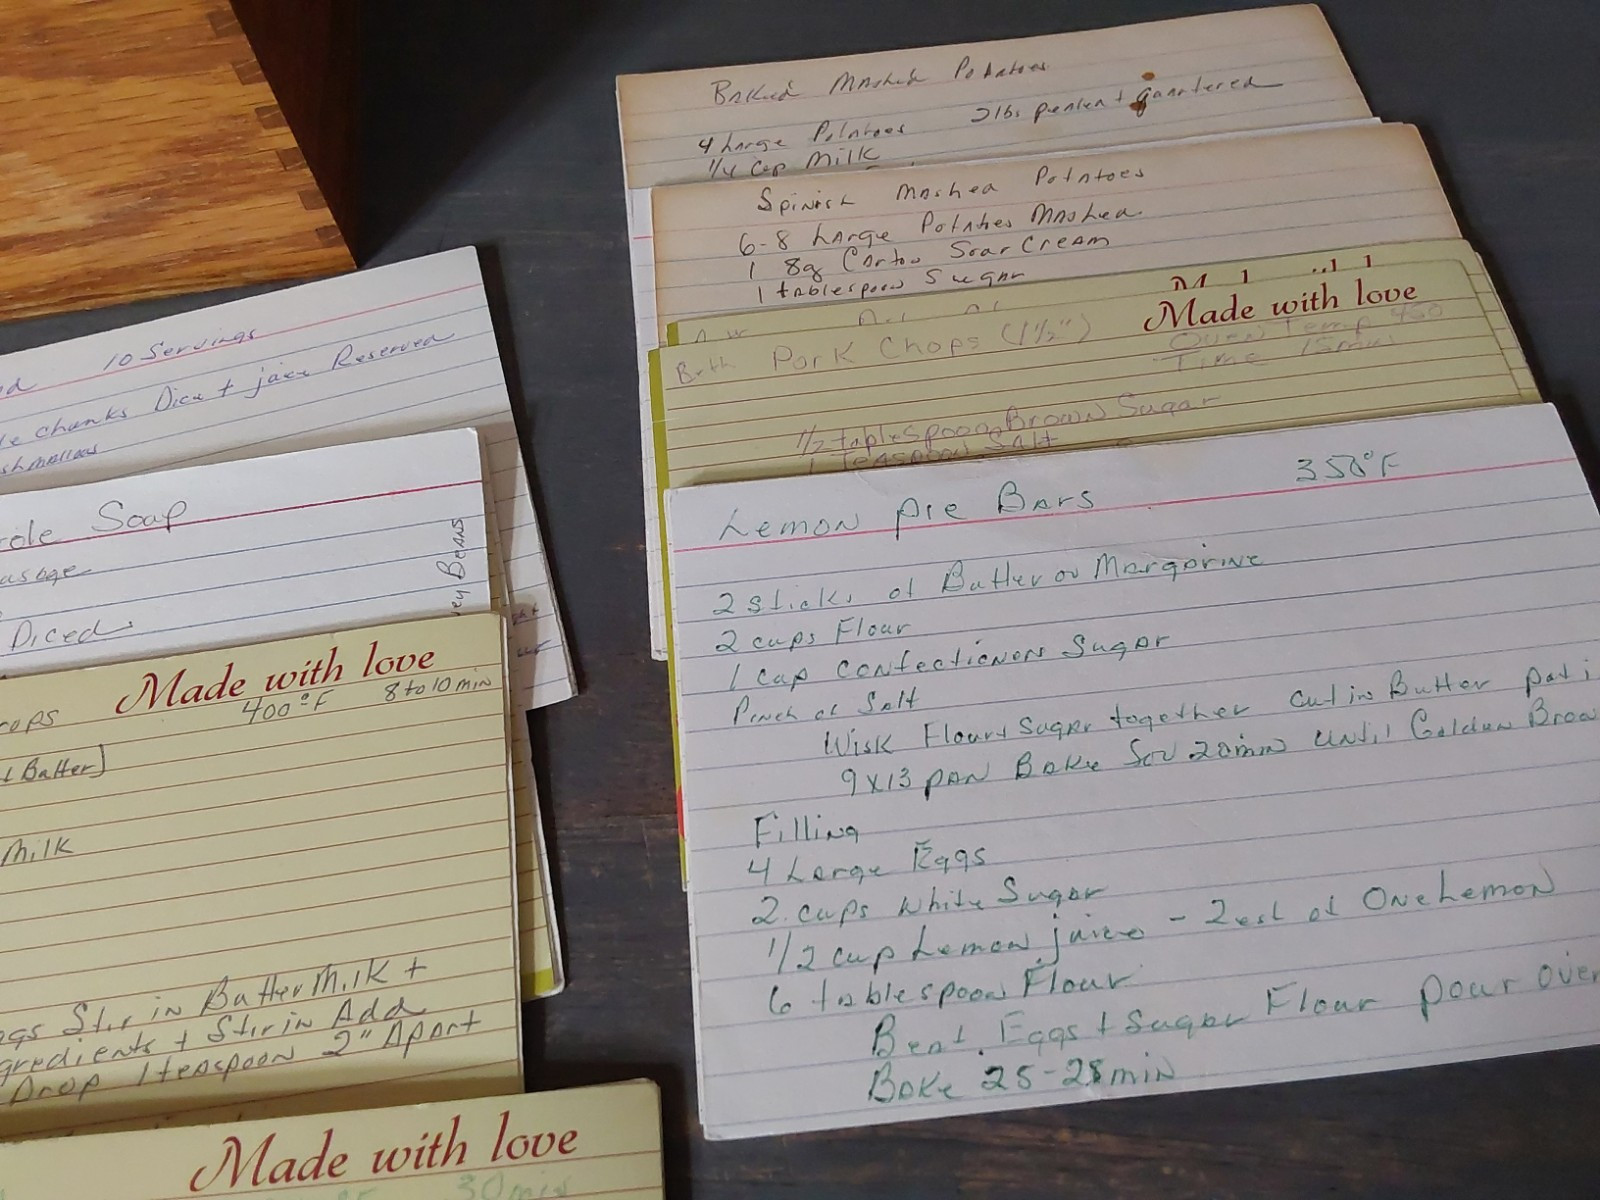 Baked Mashed Potatoes
4 Large Potatoes 2 lbs peeled + quartered
1/4 cup Milk
Spinish Mashed Potatoes
6-8 Large Potatoes Mashed
1 8oz Carton Sour Cream
1 tablespoon Sugar
Made with love
Beth Pork Chops (1½") Oven Temp 450
Time 15 min
1/2 tablespoon Brown Sugar
1 Teaspoon Salt
Lemon Pie Bars 350°F
2 sticks of Butter or Margarine
2 cups Flour
1 cup Confectioners Sugar
Pinch of Salt
Wisk Flour + Sugar together Cut in Butter pat i
9x13 pan Bake for 20 min until Golden Brow
Filling
4 Large Eggs
2 cups White Sugar
1/2 cup Lemon juice - Zest of One Lemon
6 tablespoon Flour
Beat Eggs + Sugar Flour pour over
Bake 25-28 min
10 Servings
le chunks Dice + juice Reserved
shmallows
role Soup
usage
Diced
ey Beans
Made with love
rops 400°F 8 to 10 min
t Butter]
Milk
ggs Stir in ButterMilk +
gredients + Stir in Add
Drop 1 teaspoon 2" Apart
Made with love
30 min